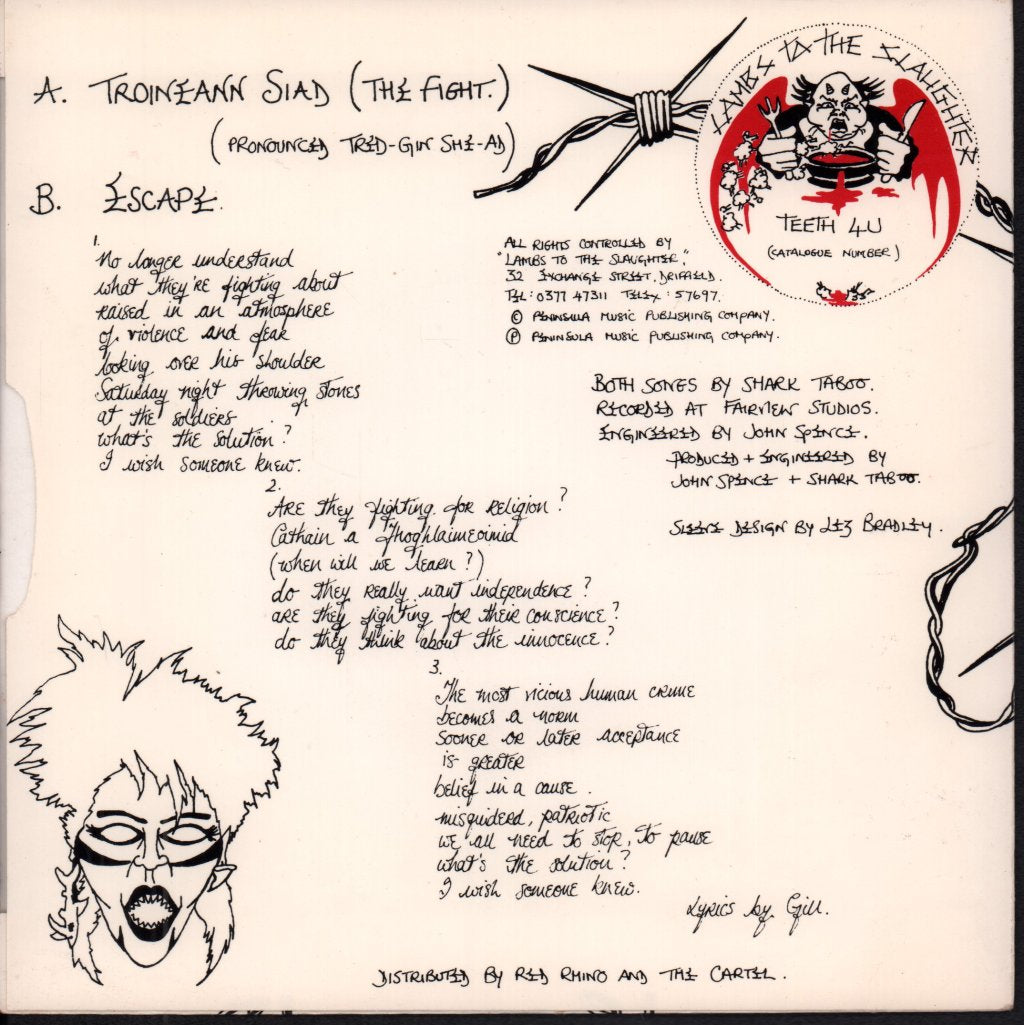 A. TROINEANN SIAD (THE FIGHT.)
(PRONOUNCED TRED-GIN SHE-AD)
B. ESCAPE.
LAMBS TO THE SLAUGHTER
TEETH 4U
(CATALOGUE NUMBER)
1.
No longer understand
what they're fighting about
raised in an atmosphere
of violence and fear
looking over his shoulder
Saturday night throwing stones
at the soldiers
what's the solution?
I wish someone knew.
ALL RIGHTS CONTROLLED BY
"LAMBS TO THE SLAUGHTER,"
32 EXCHANGE STREET, DRIFFIELD.
TEL: 0377 47311 TELEX: 57697.
© PENINSULA MUSIC PUBLISHING COMPANY.
℗ PENINSULA MUSIC PUBLISHING COMPANY.
BOTH SONGS BY SHARK TABOO.
RECORDED AT FAIRVIEW STUDIOS.
ENGINEERED BY JOHN SPENCE.
PRODUCED + ENGINEERED BY
JOHN SPENCE + SHARK TABOO.
SLEEVE DESIGN BY LIZ BRADLEY.
2.
ARE they fighting for religion?
Cathain a fhoghlaimeoimid
(when will we learn?)
do they really want independence?
are they fighting for their conscience?
do they think about the innocence?
3.
The most vicious human crime
becomes a norm
sooner or later acceptance
is greater
belief in a cause.
misguiderd, patriotic
we all need to stop, to pause
what's the solution?
I wish someone knew.
Lyrics by Gill.
DISTRIBUTED BY RED RHINO AND THE CARTEL.